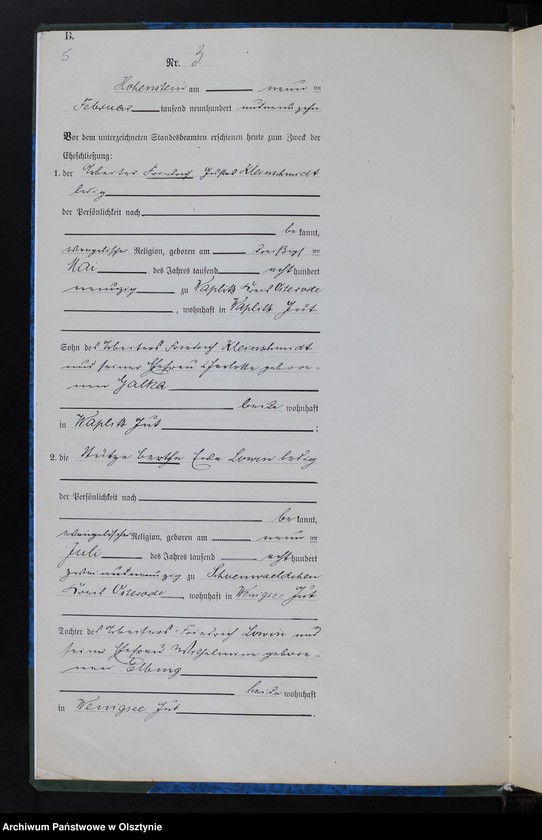 B.
5
Nr. 3
Hohenstein am neun ten
Februar tausend neunhundert und neunzehn
Vor dem unterzeichneten Standesbeamten erschienen heute zum Zweck der
Eheschließung:
1. der Arbeiter Friedrich Gustav Kleinschmidt
ledig
der Persönlichkeit nach
be kannt,
evangelischer Religion, geboren am dreißigs ten
Mai des Jahres tausend acht hundert
neunzig zu Waplitz Kreis Osterode
, wohnhaft in Waplitz Gut
Sohn des Arbeiters Friedrich Kleinschmidt
und seiner Ehefrau Charlotte gebore-
nen Galka
beide wohnhaft
in Waplitz Gut ;
2. die Stütze Bertha Ida Lowin ledig
der Persönlichkeit nach
be kannt,
evangelischer Religion, geboren am neun ten
Juli des Jahres tausend acht hundert
zweiundneunzig zu Schoenwaeldchen
Kreis Osterode, wohnhaft in Wenigsee Gut
Tochter des Arbeiters Friedrich Lowin und
seiner Ehefrau Wilhelmine gebore-
nen Elbing
beide wohnhaft
in Wenigsee Gut .
Archiwum Państwowe w Olsztynie